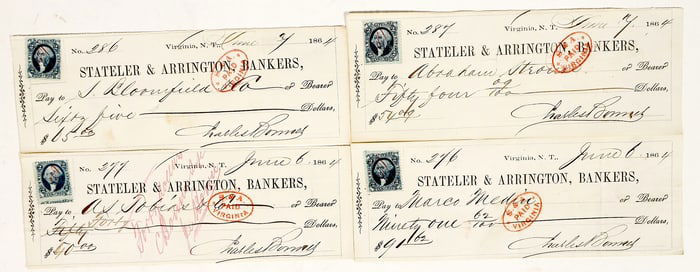 No. 286 Virginia, N. T., June 7 1864
STATELER & ARRINGTON, BANKERS,
Pay to S. Bloomfield & Co or Bearer
Sixty five Dollars,
$65.00 Charles Bonner
S & A
PAID
VIRGINIA
No. 287 Virginia, N. T., June 7 1864
STATELER & ARRINGTON, BANKERS,
Pay to Abraham or Bearer
Fifty four 00/100 Dollars,
$54.00 Charles Bonner
S & A
PAID
VIRGINIA
No. 277 Virginia, N. T., June 6 1864
STATELER & ARRINGTON, BANKERS,
Pay to As. Tobias or Bearer
Fifty Forty Dollars,
$ Charles Bonner
S & A
PAID
VIRGINIA
No. 276 Virginia, N. T., June 6 1864
STATELER & ARRINGTON, BANKERS,
Pay to Marco or Bearer
Ninety one 62/100 Dollars,
$91.62 Charles Bonner
S & A
PAID
VIRGINIA